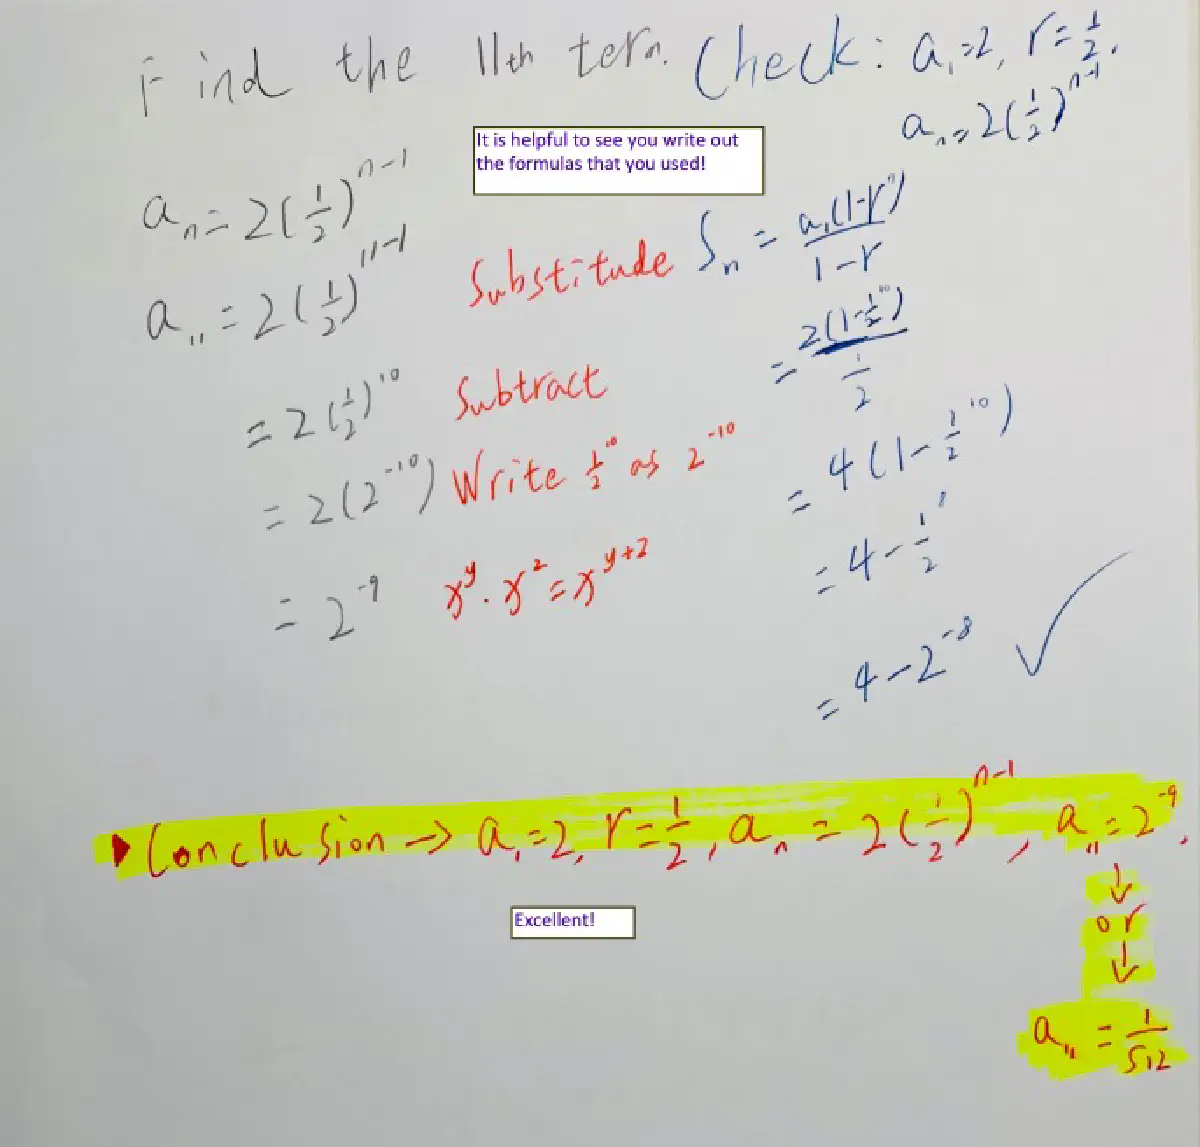 Find the 11th term.
a_n = 2(1/2)^{n-1}
a_11 = 2(1/2)^{11-1} Substitude
= 2(1/2)^{10} Subtract
= 2(2^{-10}) Write 1/2^{10} as 2^{-10}
= 2^{-9} x^y · x^z = x^{y+z}
Check: a_1=2, r=1/2.
a_n = 2(1/2)^{n-1}
It is helpful to see you write out
the formulas that you used!
S_n = a_1(1-r^n)/1-r
= 2(1-1/2^{10})/1/2
= 4(1-1/2^{10})
= 4-1/2^8
= 4-2^{-8} ✓
Conclusion → a_1=2, r=1/2, a_n = 2(1/2)^{n-1}, a_11=2^{-9}.
↓
or
↓
a_11 = 1/512
Excellent!